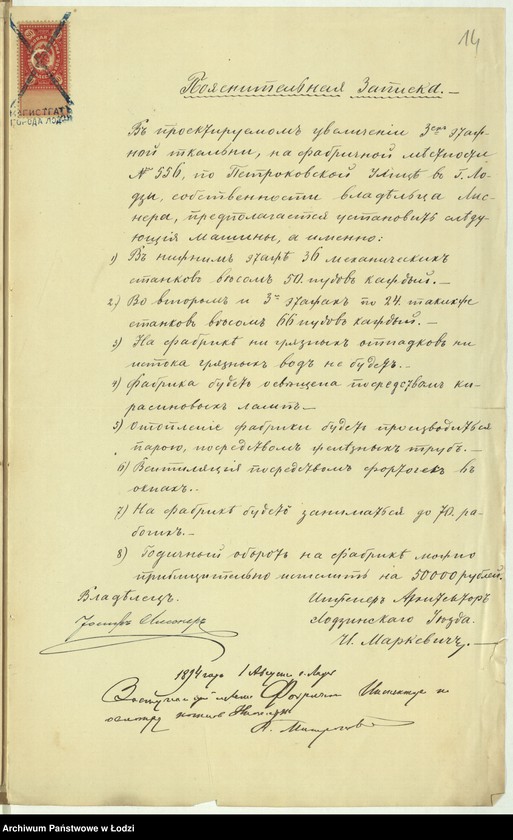 14
МАГИСТРАТ
ГОРОДА ЛОДЗИ
Пояснительная Записка.
Въ проектируемомъ увеличенiи 3хъ этаж-
ной ткальни, на фабричной мѣстности
№ 556, по Петроковской Улицѣ въ г. Ло-
дзи, собственности владѣльца Лис-
нера, предполагается установить слѣду-
ющiя машины, а именно:
1) Въ нижнимъ этажѣ 36 механическихъ
станковъ вѣсомъ 50. пудовъ каждый.
2) Во вторымъ и 3мъ этажахъ по 24. такихже
станковъ вѣсомъ 66 пудовъ каждый.
3) На фабрикѣ ни грязныхъ отпадковъ ни
истока грязныхъ водъ не будетъ.
4) Фабрика будетъ освѣщена посредствомъ ки-
расиновыхъ лампъ
5) Отопленiе фабрики будетъ производиться
парою, посредствомъ желѣзныхъ трубъ.
6) Вентиляцiя посредствомъ форточекъ въ
окнахъ.
7) На фабрикѣ будетъ заниматься до 70. ра-
бочихъ.
8) Годичный оборотъ на фабрикѣ можно
приблизительно исчислить на 50000 рублей.
Владѣлецъ.
Инженеръ Архитекторъ
Лодзинскаго Уѣзда.
И. Маркевичъ.
1894 года 1 Августа г. Лодзь
Фабричный Инспекторъ